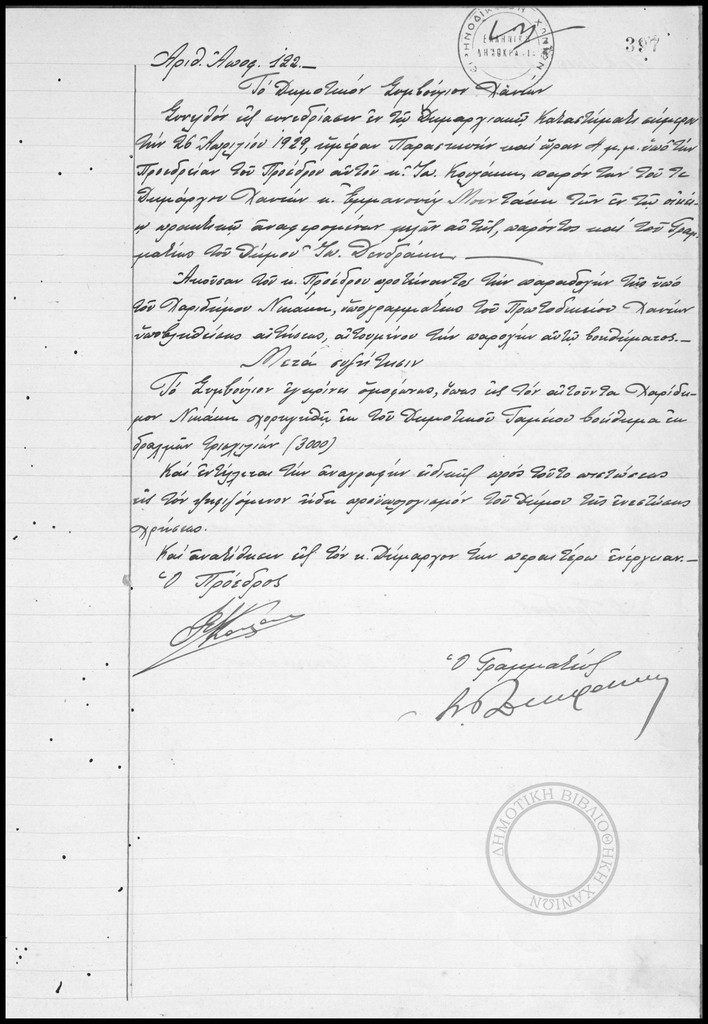 397
ΕΙΡΗΝΟΔΙΚΕΙΟΝ ΧΑΝΙΩΝ
ΕΛΛΗΝΙΚΗ
ΔΗΜΟΚΡΑΤΙΑ
Αριθ. Αποφ. 122.—
Τὸ Δημοτικὸν Συμβούλιον Χανίων
Συνελθὸν εἰς συνεδρίασιν ἐν τῷ Δημαρχιακῷ Καταστήματι σήμερον
τὴν 26 Ἀπριλίου 1929, ἡμέραν Παρασκευὴν καὶ ὥραν 4 μ.μ. ὑπὸ τὴν
Προεδρείαν τοῦ Προέδρου αὐτοῦ κ. Ἰω. παρόντων τοῦ τε
Δημάρχου Χανίων κ. Ἐμμανουὴλ Μουντάκη τῶν ἐν τῷ οἰκείῳ
πρακτικῷ ἀναφερομένων μελῶν αὐτῆς, παρόντος καὶ τοῦ Γραμ-
ματέως τοῦ Δήμου Ἰω. Δενδράκη —
Ἀκοῦσαν τοῦ κ. Προέδρου προτείναντος τὴν παραδοχὴν τῆς ὑπὸ
τοῦ Χαριδήμου Νικάκη, ὑπογραμματέως τοῦ Πρωτοδικείου Χανίων
ὑποβληθείσης αἰτήσεως, αἰτουμένου τὴν παροχὴν αὐτῷ βοηθήματος.—
Μετὰ συζήτησιν
Τὸ Συμβούλιον ἐγκρίνει ὁμοφώνως, ὅπως εἰς τὸν αἰτοῦντα Χαρίδη-
μον Νικάκη χορηγηθῇ ἐκ τοῦ Δημοτικοῦ Ταμείου βοήθημα ἐκ
δραχμῶν τρισχιλίων (3000)
Καὶ ἐντέλλεται τὴν ἀναγραφὴν εἰδικῆς πρὸς τοῦτο πιστώσεως
εἰς τὸν ψηφιζόμενον ἤδη προϋπολογισμὸν τοῦ Δήμου τῆς ἐνεστώσης
χρήσεως.
Καὶ ἀνατίθησιν εἰς τὸν κ. Δήμαρχον τὴν περαιτέρω ἐνέργειαν.—
Ὁ Πρόεδρος
Ὁ Γραμματεύς
ΔΗΜΟΤΙΚΗ ΒΙΒΛΙΟΘΗΚΗ ΧΑΝΙΩΝ